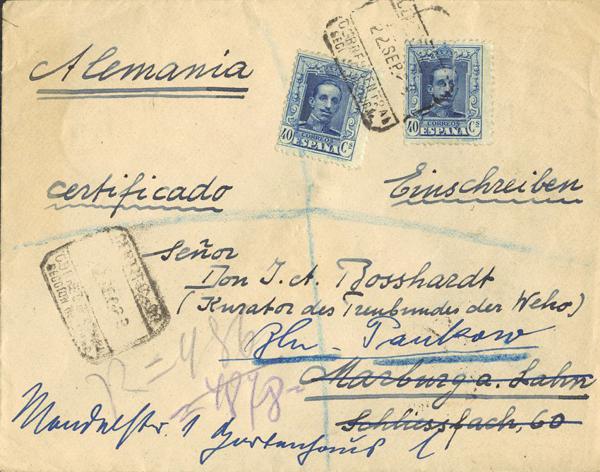 Alemania
40 CORREOS Cs
ESPAÑA
40 CORREOS Cs
ESPAÑA
22 SEP
certificado
Einschreiben
Señor
Don J. A. Bosshardt
(Kurator des Treubundes der Weho)
Bln - Pankow
Marburg a. Lahn
Schliessfach, 60
Mendelstr. 1 Gartenhaus
R = 486
4878